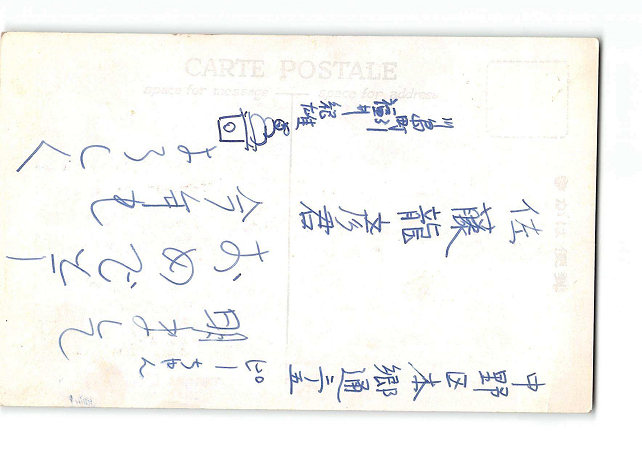 CARTE POSTALE
space for message
space for address
中野区本郷通
佐藤龍彦君
川島町
ピーちゃん
明まして
おめでとー
今年も
よろしく